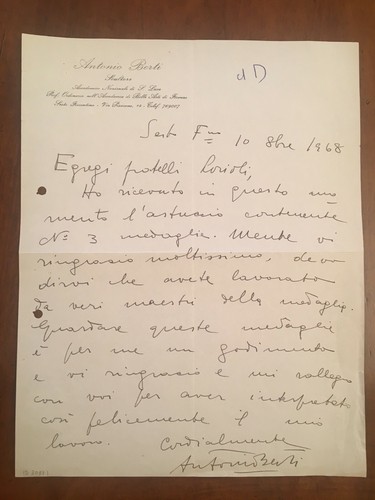 Antonio Berti
Scultore
Accademico Nazionale di S. Luca
Prof. Ordinario nell'Accademia di Belle Arti di Firenze
Sesto Fiorentino - Via Piemonte, 14 - Telef.
Sesto F.no 10 8bre 1968
Egregi fratelli Lorioli,
Ho ricevuto in questo mo
mento l'astuccio contenente
No 3 medaglie. Mentre vi
ringrazio moltissimo, devo
dirvi che avete lavorato
da veri maestri della medaglia.
Guardare queste medaglie
è per me un godimento
e vi ringrazio e mi rallegro
con voi per aver interpretato
così felicemente il mio
lavoro. Cordialmente
Antonio Berti